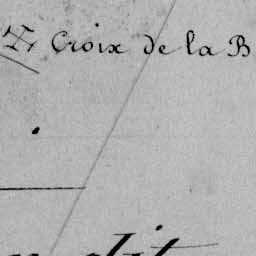 Croix de la B
dit